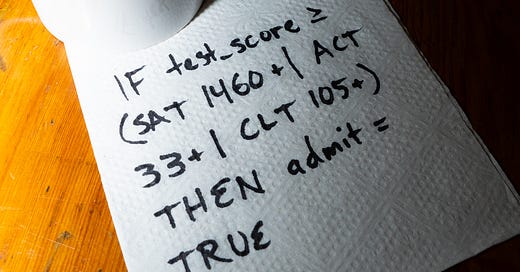 IF test_score ≥
(SAT 1460+ | ACT
33+ | CLT 105+)
THEN admit =
TRUE